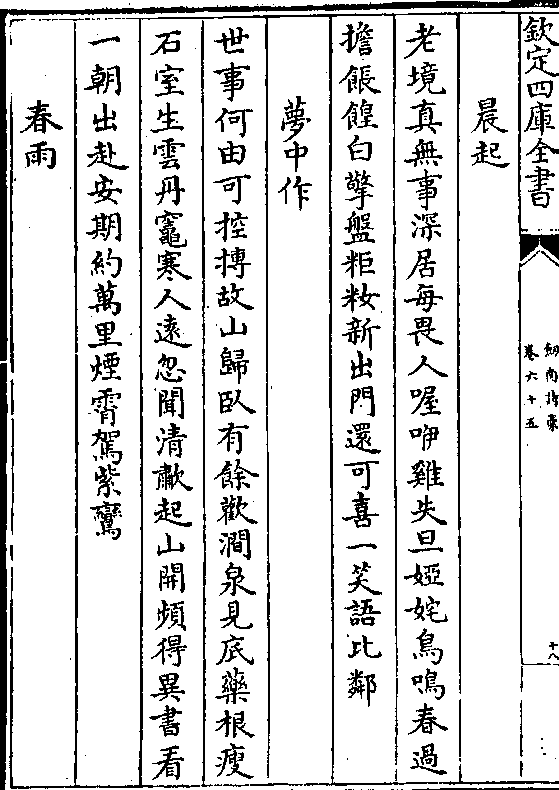 欽定四庫全書
劒南詩藁
卷六十五
十八
晨起
老境真無事深居每畏人喔咿雞失旦婭姹鳥鳴春過
擔餦餭白擎盤粔籹新出門還可喜一笑語比鄰
夢中作
世事何由可控摶故山歸臥有餘歡澗泉見底藥根瘦
石室生雲丹竈寒人遠忽聞清嘯起山開頻得異書看
一朝出赴安期約萬里煙霄駕紫鸞
春雨